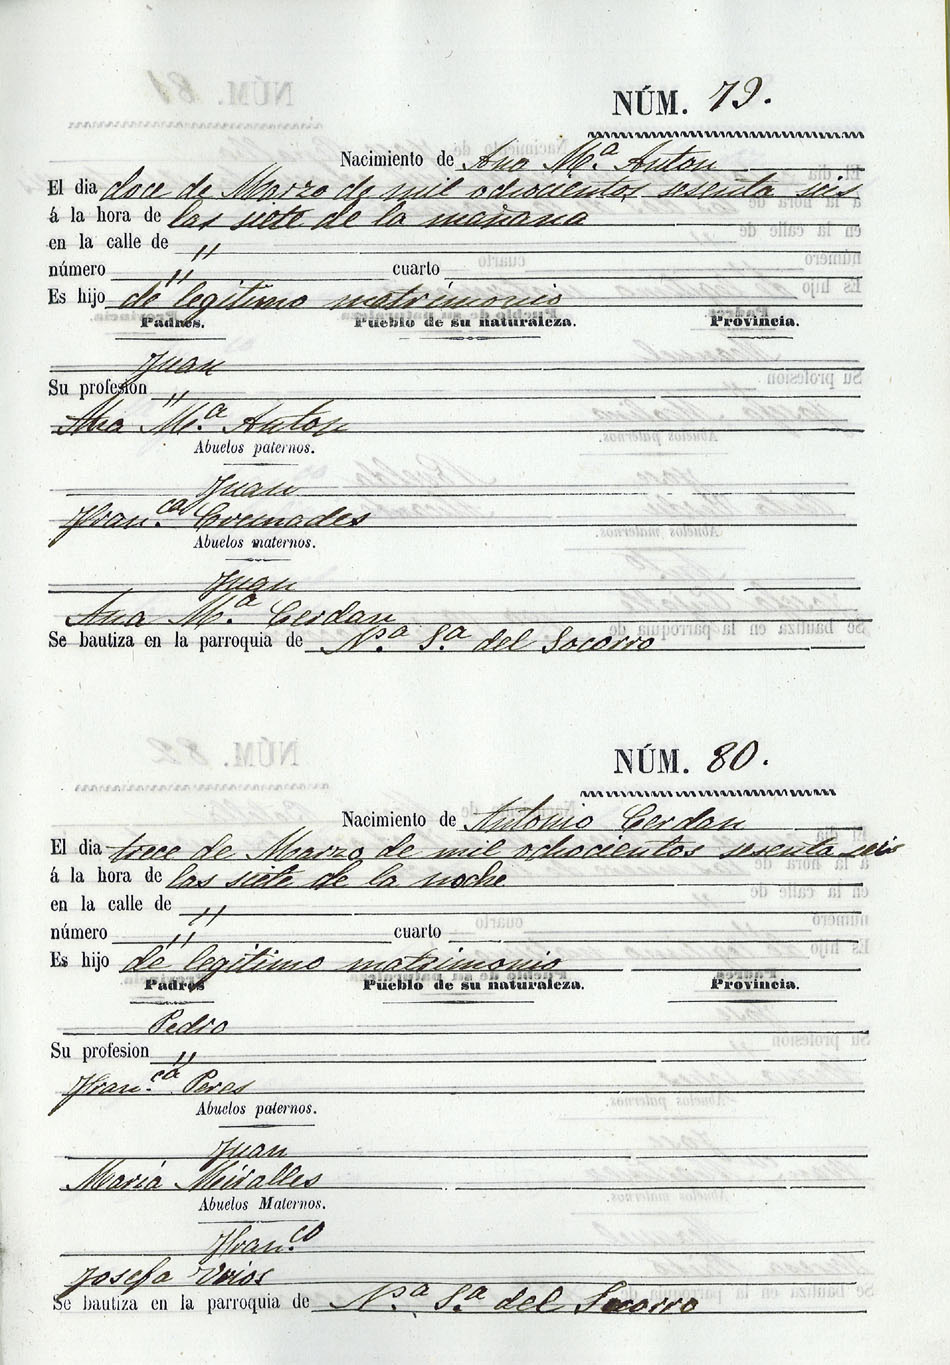 NÚM. 79.
Nacimiento de Ana M.ª Anton
El dia doce de Marzo de mil ochocientos sesenta seis
á la hora de las siete de la mañana
en la calle de "
número " cuarto
Es hijo de legitimo matrimonio
Padres. Pueblo de su naturaleza. Provincia.
Juan
Su profesion "
Ana M.ª Anton
Abuelos paternos.
Juan
Fran.ca Cremades
Abuelos maternos.
Juan
Ana M.ª Cerdan
Se bautiza en la parroquia de N.ª S.ª del Socorro
NÚM. 80.
Nacimiento de Antonio Cerdan
El dia trece de Marzo de mil ochocientos sesenta seis
á la hora de las siete de la noche
en la calle de "
número " cuarto
Es hijo de legitimo matrimonio
Padres Pueblo de su naturaleza. Provincia.
Pedro
Su profesion "
Fran.ca Peres
Abuelos paternos.
Juan
Maria Miralles
Abuelos Maternos.
Fran.co
Josefa Urios
Se bautiza en la parroquia de N.ª S.ª del Socorro